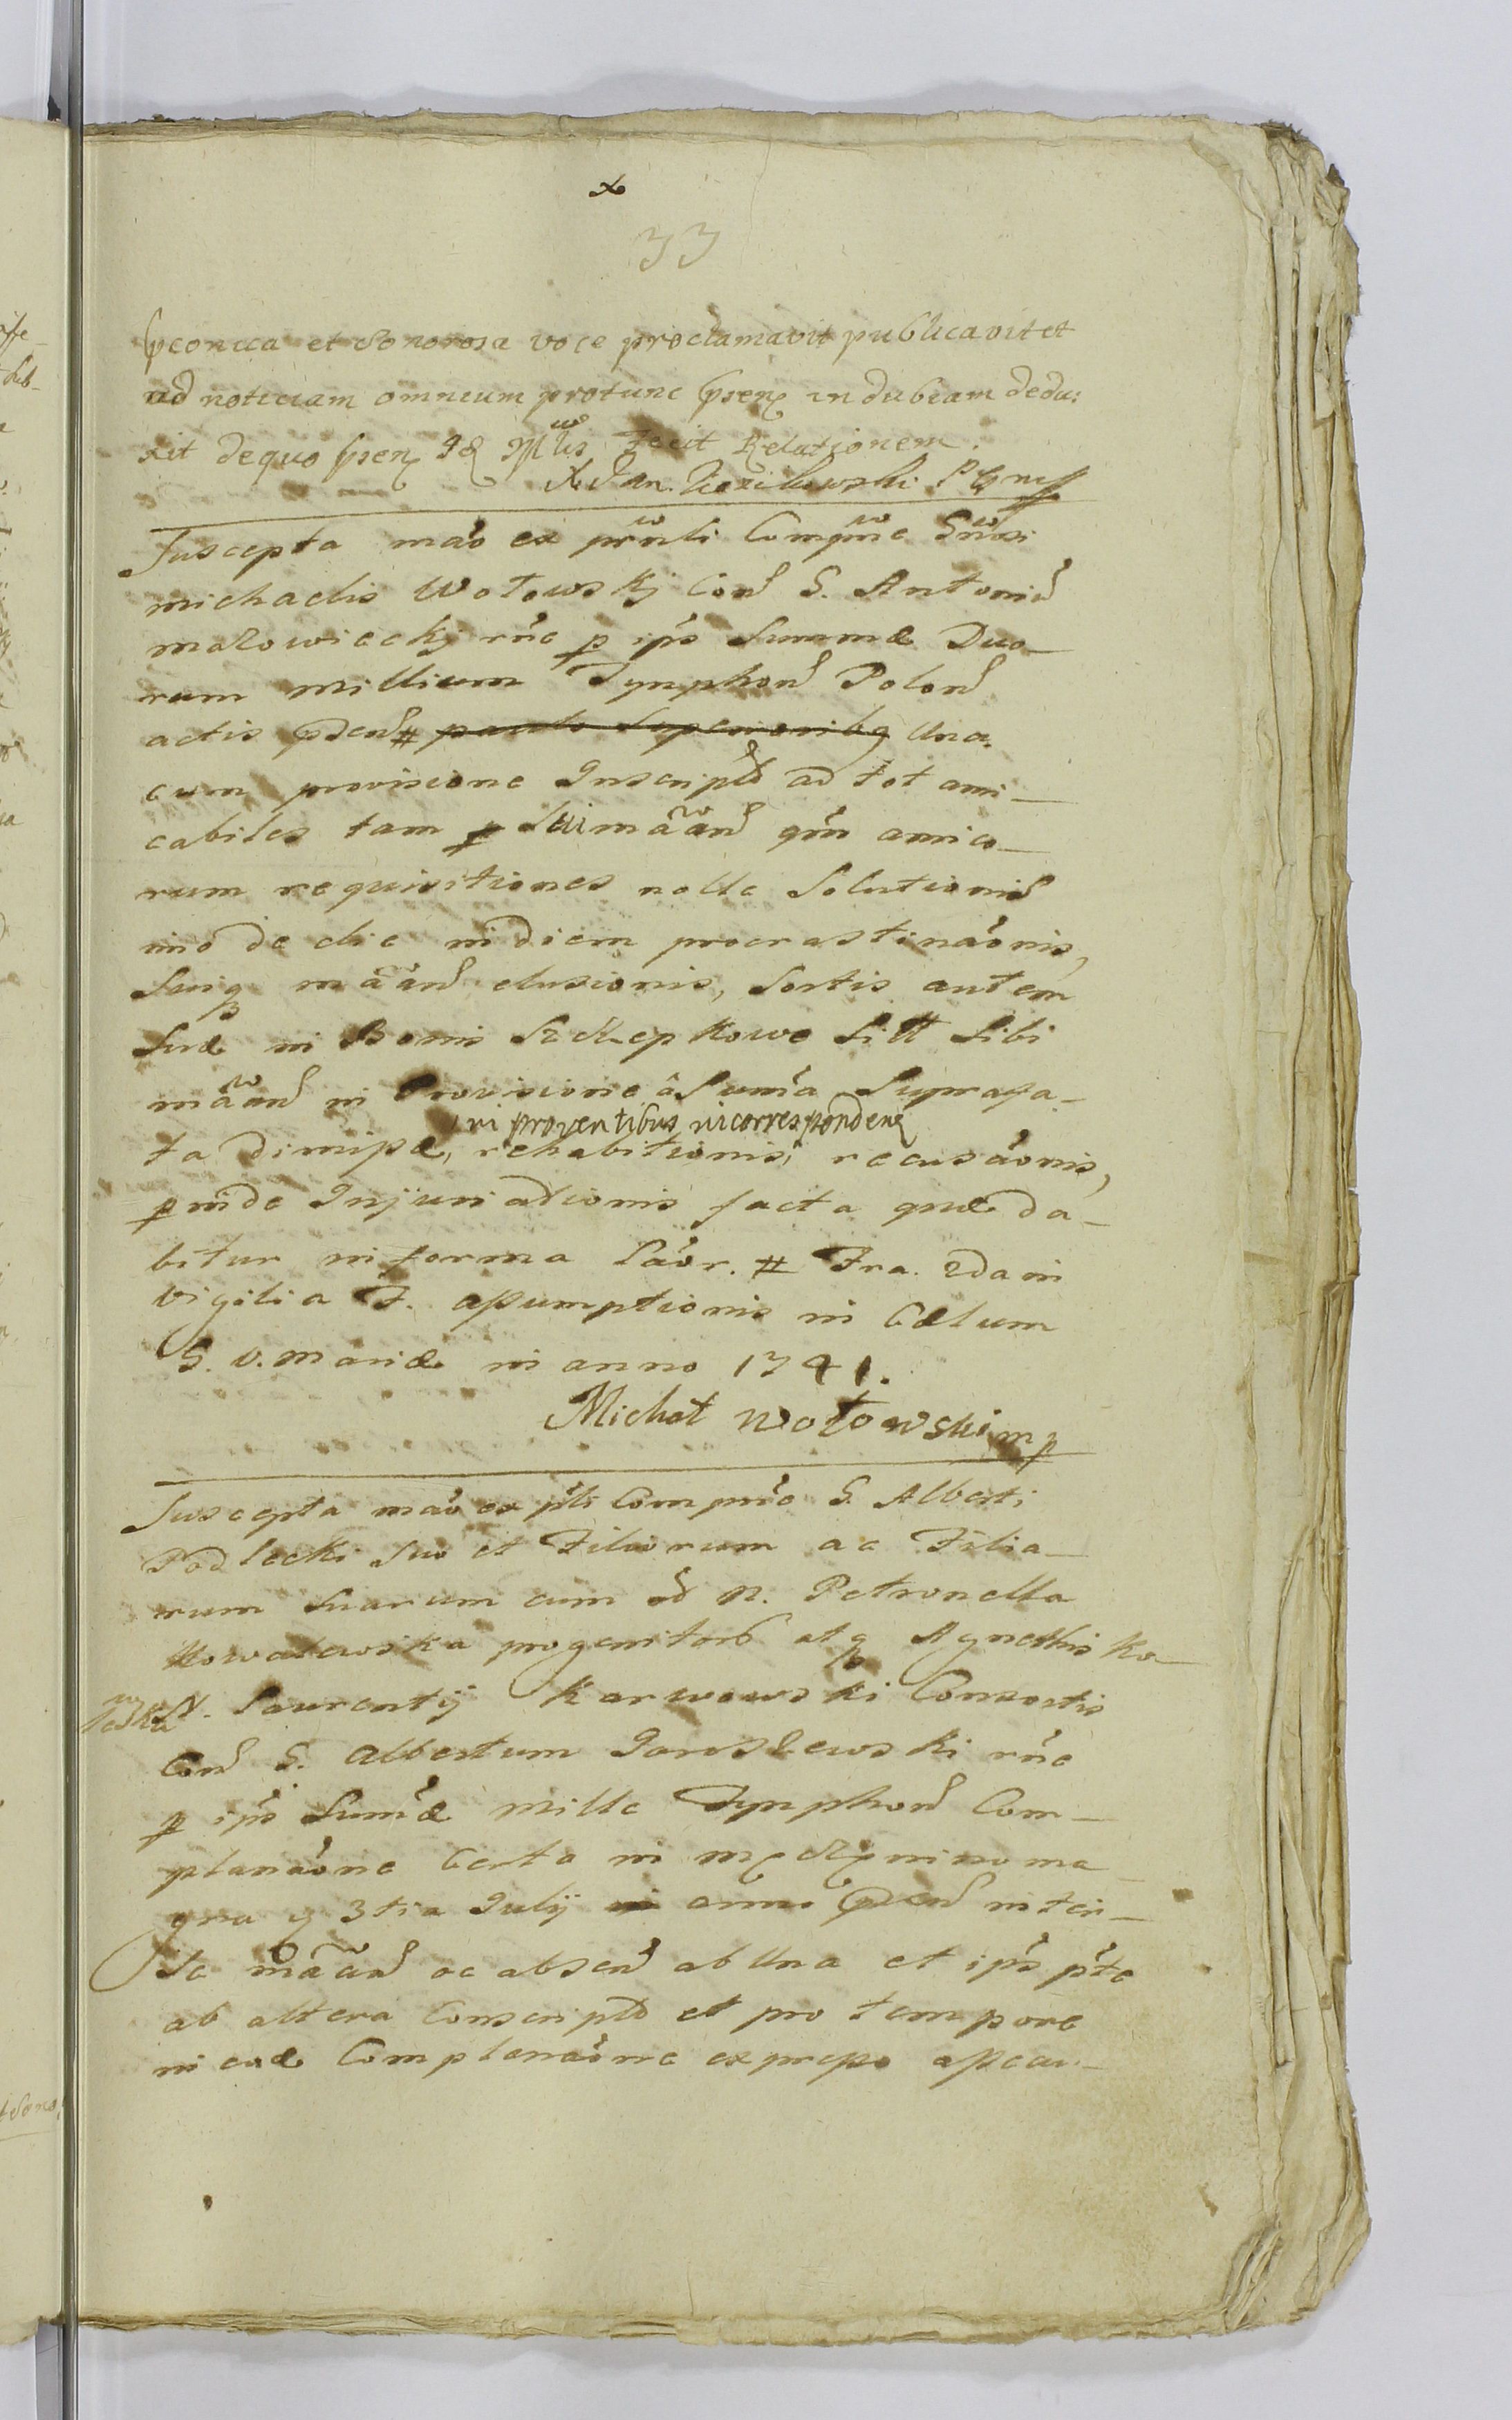 33
et sonorosa voce proclamavit publicavit et
ad noticiam omnium protunc in dubiam dedu:
xit de quo fecit Relationem.
X Jan.
Suscepta mão ex prnti Compne Gnosi
michaelis Wołowskj Con̄ G. Antoniu̅
mazowieckj rñe p ips̃ Summæ Duo-
rum millium Tynphon̄ Polon̄
actis # paulo superioribq Una
cum provisione Inscripto ad tot ami-
cabiles tam p qm̃ amico-
rum requisitiones nolle Solutionis
imo de die in diem procrastinaõnis,
Suiq mãan̄ elusionis, Sortis autem
Suæ in Bonis Szczepkowo Sitt Sibi
mãan̄ in Provisione â Suma Suprafa-
in proventibus in corresponden
ta dimissæ, rehabitionis, recusaõnis,
p inde Injuriationis facta quæ da-
bitur in forma Laõr. # Fra. 2da in
vigilia F. assumptionis in Cælum
G. V. Mariæ in anno 1741.
Michał Wołowski mp
Suscepta mão ex pñti Compnẽ G. Alberti
Podlecki suo et Filiorum ac Filia-
rum Suarum cum od N. Petronella
Kowalewska progenitorũ atq Agnethis Ko-
N. Laurentÿ Karwowski Consortis
Con̄ G. Albertum Jaroslewski rñe
p ips̃ Sumæ mille Tynphon̄ Com-
planaõne Certa in ma
gna 3tia Julÿ in anno inter-
Se mãan̄ ac absen̄ ab Una et ips̃ pt̃e
ab altera Conscripto et pro tempore
in eadẽ Complanaõne expresso assecu-